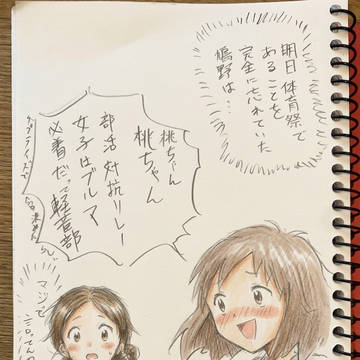 明日体育祭で
あることを
完全に忘れていた
鳩野は…
桃ちゃん
桃ちゃん
部活対抗リレー
女子はブルマ
必着だって軽音部
サプライズで
マジで
言ってんの